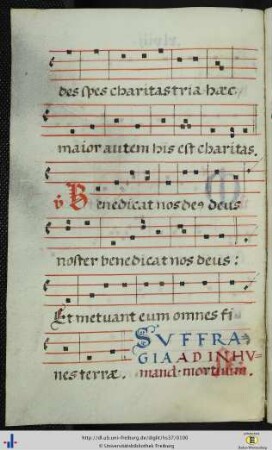 des spes charitas tria hæc
maior autem his est charitas.
℣ Benedicat nos de9 deus
noster benedicat nos deus:
Et metuant eum omnes fi
nes terræ.
SVFFRA
GIA AD INHV
mand. mortuum.
http://dl.ub.uni-freiburg.de/diglit/hs37/0100
© Universitätsbibliothek Freiburg